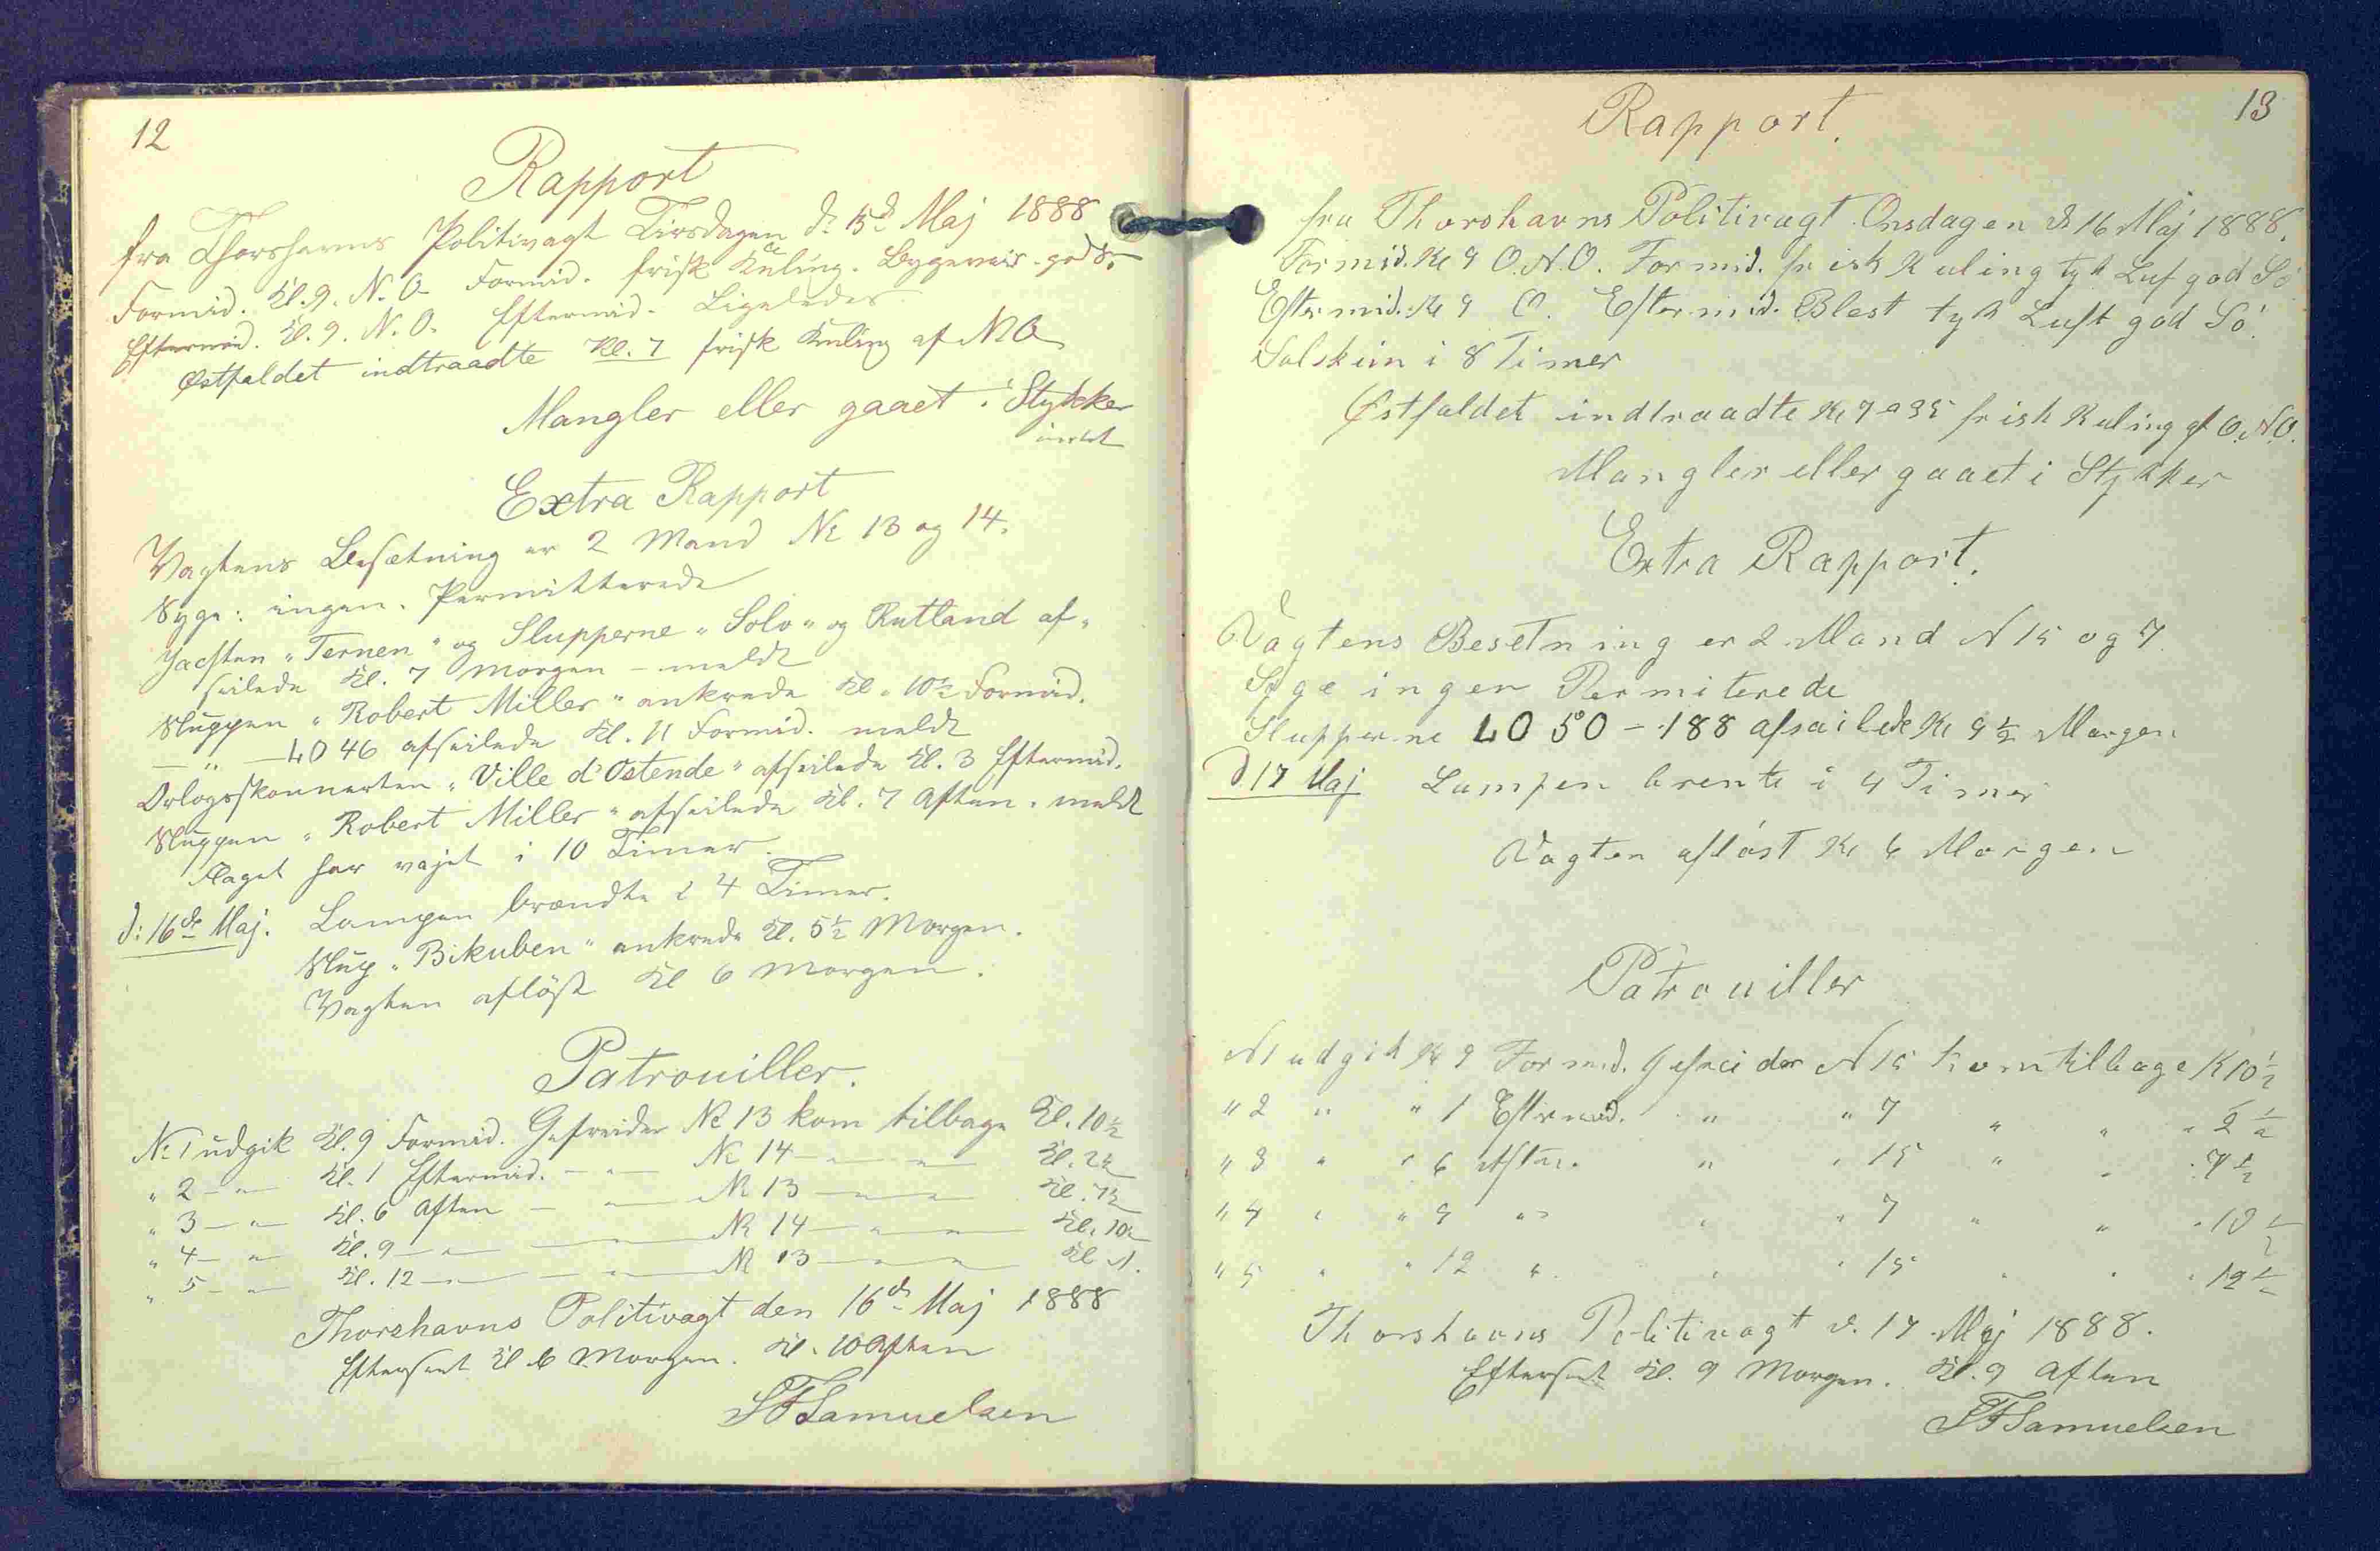 12
Rapport
fra Thorshavns Politivagt Tirsdagen d: 15d Maj 1888
Formid. Kl. 9. N. O. Formid. frisk Kuling. Bygeveir. god S.
Eftermid. Kl. 9. N. O. Eftermid. Ligeledes
Østfaldet indtraadte Kl. 7 frisk Kuling af N O
Mangler eller gaaet i Stykker
intet
Extra Rapport
Vagtens Besætning er 2 Mand No 13 og 14.
Syge: ingen. Permitterede
Jachten "Ternen" og Slupperne "Solo" og Rutland af-
seilede Kl. 7 Morgen - meldt
Sluppen "Robert Miller" ankrede Kl. 10½ Formid.
— " — LO 46 afseilede Kl. 11 Formid. meldt
Orlogsskonnerten "Ville d'Ostende" afseilede Kl. 3 Eftermid.
Sluppen "Robert Miller" afseilede Kl. 7 Aften. meldt
Flaget har vajet i 10 Timer.
d: 16de Maj. Lampen brændte i 4 Timer.
Slup "Bikuben" ankrede Kl. 5½ Morgen.
Vagten afløst Kl 6 Morgen.
Patrouiller.
No 1 udgik Kl. 9 Formid. Gefreider No 13 kom tilbage Kl. 10½
" 2 — " — Kl. 1 Eftermid. — " — No 14 — " — " — Kl. 2½
" 3 — " — Kl. 6 Aften — " — No 13 — " — " — Kl. 7½
" 4 — " Kl. 9 — " — — " — No 14 — " — " — Kl. 10½
" 5 — " — Kl. 12 — " — — " — No 13 — " — " — Kl 1.
Thorshavns Politivagt den 16de Maj 1888
Efterseet Kl 6 Morgen. Kl. 10 Aften
SFSamuelsen
13
Rapport.
fra Thorshavns Politivagt Onsdagen d 16 Maj 1888.
Formid. Kl 9 O.N.O. Formid. frisk Kuling tyk Luf god Sö
Eftermid. Kl 9 O. Eftermid. Blest tyk Luft god Sö.
Solskin i 8 Timer
Østfaldet indtraadte Kl 7 a 35 frisk Kuling af O.N.O.
Mangler eller gaaet i Stykker
Extra Rapport.
Vagtens Besetning er 2 Mand N 15 og 7.
Syge ingen Permiterede
Slupperne LO 50 - 188 afsailede Kl 9½ Morgen
d 17 Maj Lampen brente i 4 Timer
Vagten aflöst Kl 6 Morgen
Patrouiller
N 1 udgik Kl 9 Formid. Gefreider N 15 kom tilbage K 10½
" 2 " " 1 Eftermid. " " 7 " " " 2½
" 3 " " 6 Aften. " " 15 " " " 7½
" 4 " " 9 " " " 7 " " " 10½
" 5 " " 12 " " " 15 " " " 12½
Thorshavns Politivagt d. 17 Maj 1888.
Efterseet Kl. 9 Morgen. Kl. 9 Aften
SFSamuelsen